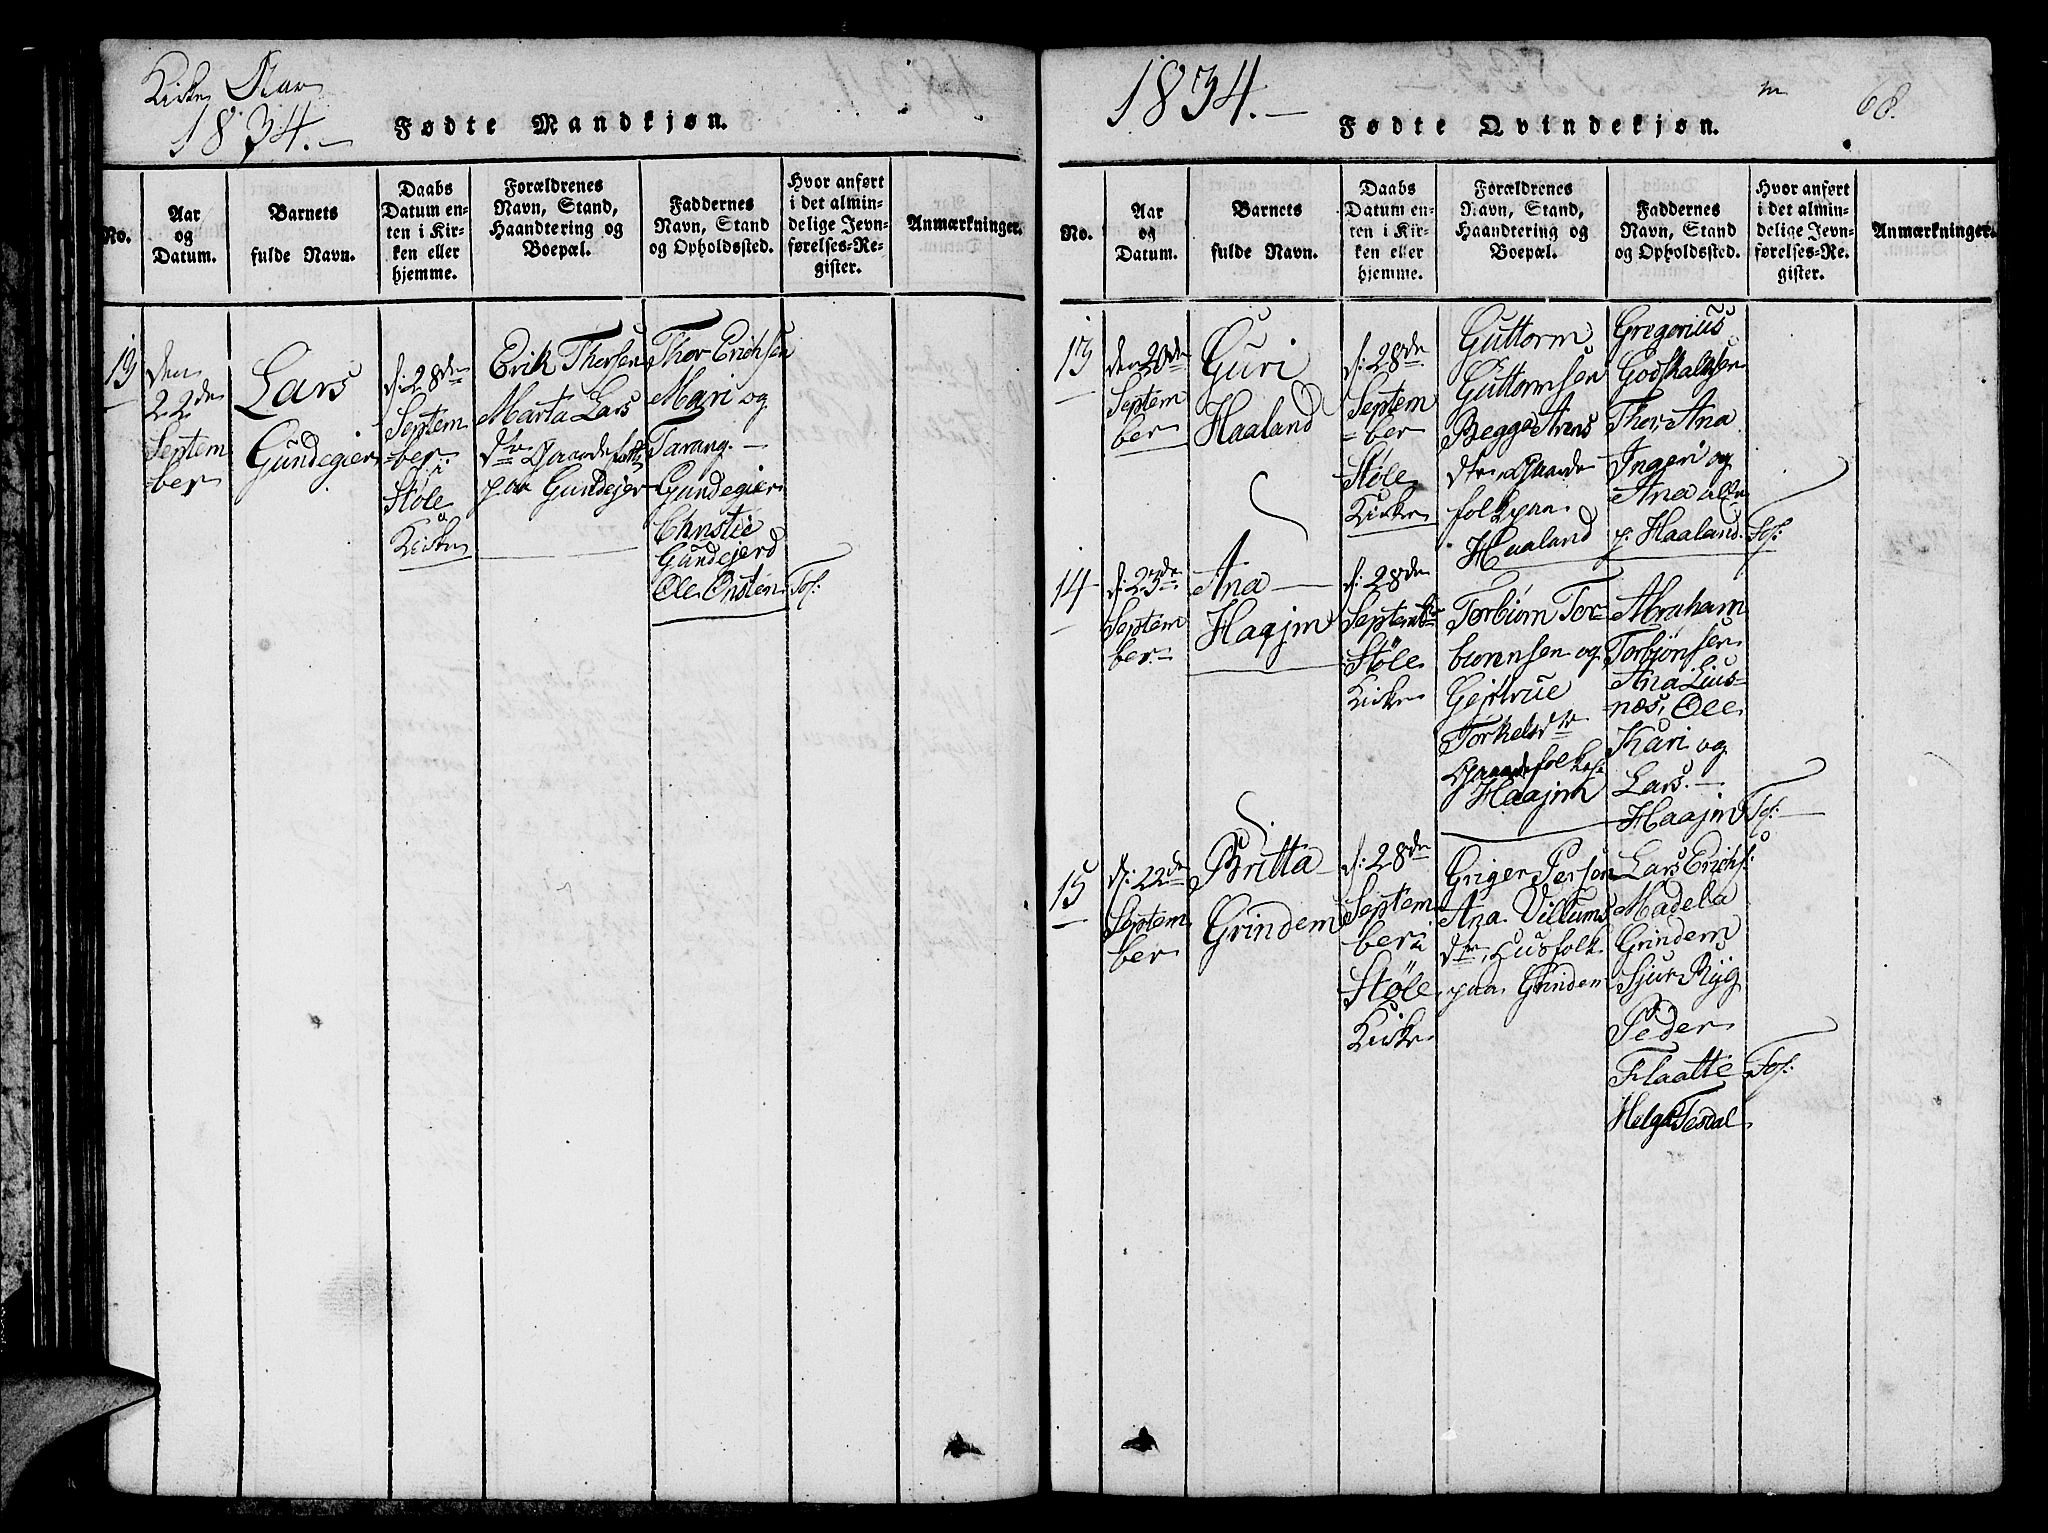 Kirke Aar
1834.
Fødte Mandkjøn.
No.
Aar
og
Datum.
Barnets
fulde Navn.
Daabs
Datum en-
ten i Kir-
ken eller
hjemme.
Forældrenes
Navn, Stand,
Haandtering og
Boepæl.
Faddernes
Navn, Stand
og Opholdssted.
Hvor anført
i det almin-
delige Jevn-
førelses-Re-
gister.
Anmærkninger.
13
den
22de
Septem
=ber
Lars
Gundegier
d: 28de
Septem
=ber i
Støle
Kirke
Erik Thorsen
Marta Lars
dtr Gaardefolk
paa Gundejer
Thor Erichsen
Mari og
Tarang. —
Gundegier
Christie
Gundejerd
Ole Onsten
Tof:
1834.
68.
Fødte Qvindekjøn.
No.
Aar
og
Datum.
Barnets
fulde Navn.
Daabs
Datum en-
ten i Kir-
ken eller
hjemme.
Forældrenes
Navn, Stand,
Haandtering og
Boepæl.
Faddernes
Navn, Stand
og Opholdssted.
Hvor anført
i det almin-
delige Jevn-
førelses-Re-
gister.
Anmærkninger.
13
den 20de
Septem
ber
Guri
Haaland
d: 28de
Septem
=ber
Støle
Kirke
Guttorm
Guttormsen
Begga Arens
dtr Gaarde
folk paa
Haaland
Gregorius
Godskalksen
Thor, Ana
Ingeri og
Ana alle
p: Haaland.
Tof:
14
d: 23de
Septem
ber
Ana
Haajm
d: 28de
Septembr
Støle
Kirke
Torbiørn Tor=
biørnsen og
Gejrtrue
Torkelsdtr
Gaardefolk p:
Haajm
Abraham
Torbjønsen
Ana Lius=
næs, Ole
Kari og
Lars. —
Haajm
Tof:
15
d: 22de
Septem
ber
Britta
Grindem
d: 28de
Septem
ber i
Støle
Kirke
Griger Persen
Ana Villums
dtr, Husfolk
paa Grindem
Lars Erichs:
Madela
Grindem
Sjur Ryg
Peder
Flaatte
Helga Tesdal
Tof: